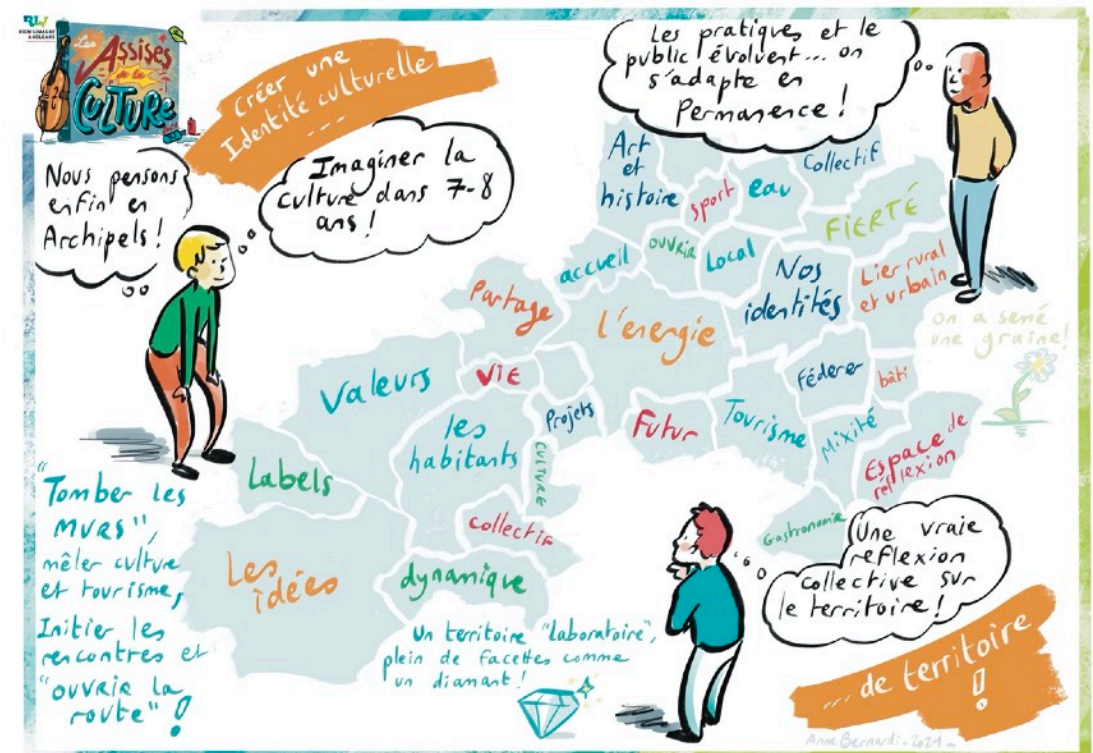 RLV
RIOM LIMAGNE
& VOLCANS
Les
Assises
de la
Culture
Créer une
Identité culturelle
...
Nous pensons
enfin en
Archipels !
Imaginer la
culture dans 7-8
ans !
Les pratiques et le
public évoluent... on
s'adapte en
Permanence !
Art
et
histoire
sport
eau
Collectif
FIERTÉ
accueil
ouvrir
Local
Nos
identités
Lier rural
et urbain
Partage
l'énergie
on a semé
une graine !
Valeurs
VIE
Projets
Futur
Tourisme
Fédérer
bâti
Mixité
Espace de
réflexion
les
habitants
CULTURE
Labels
collectif
Gastronomie
Les
idées
dynamique
"Tomber les
MURS",
mêler culture
et tourisme,
Initier les
rencontres et
"ouvrir la
route" !
Un territoire "laboratoire",
plein de facettes comme
un diamant !
Une vraie
reflexion
collective sur
le territoire !
... de territoire
!
Anne Bernardi - 2021 -